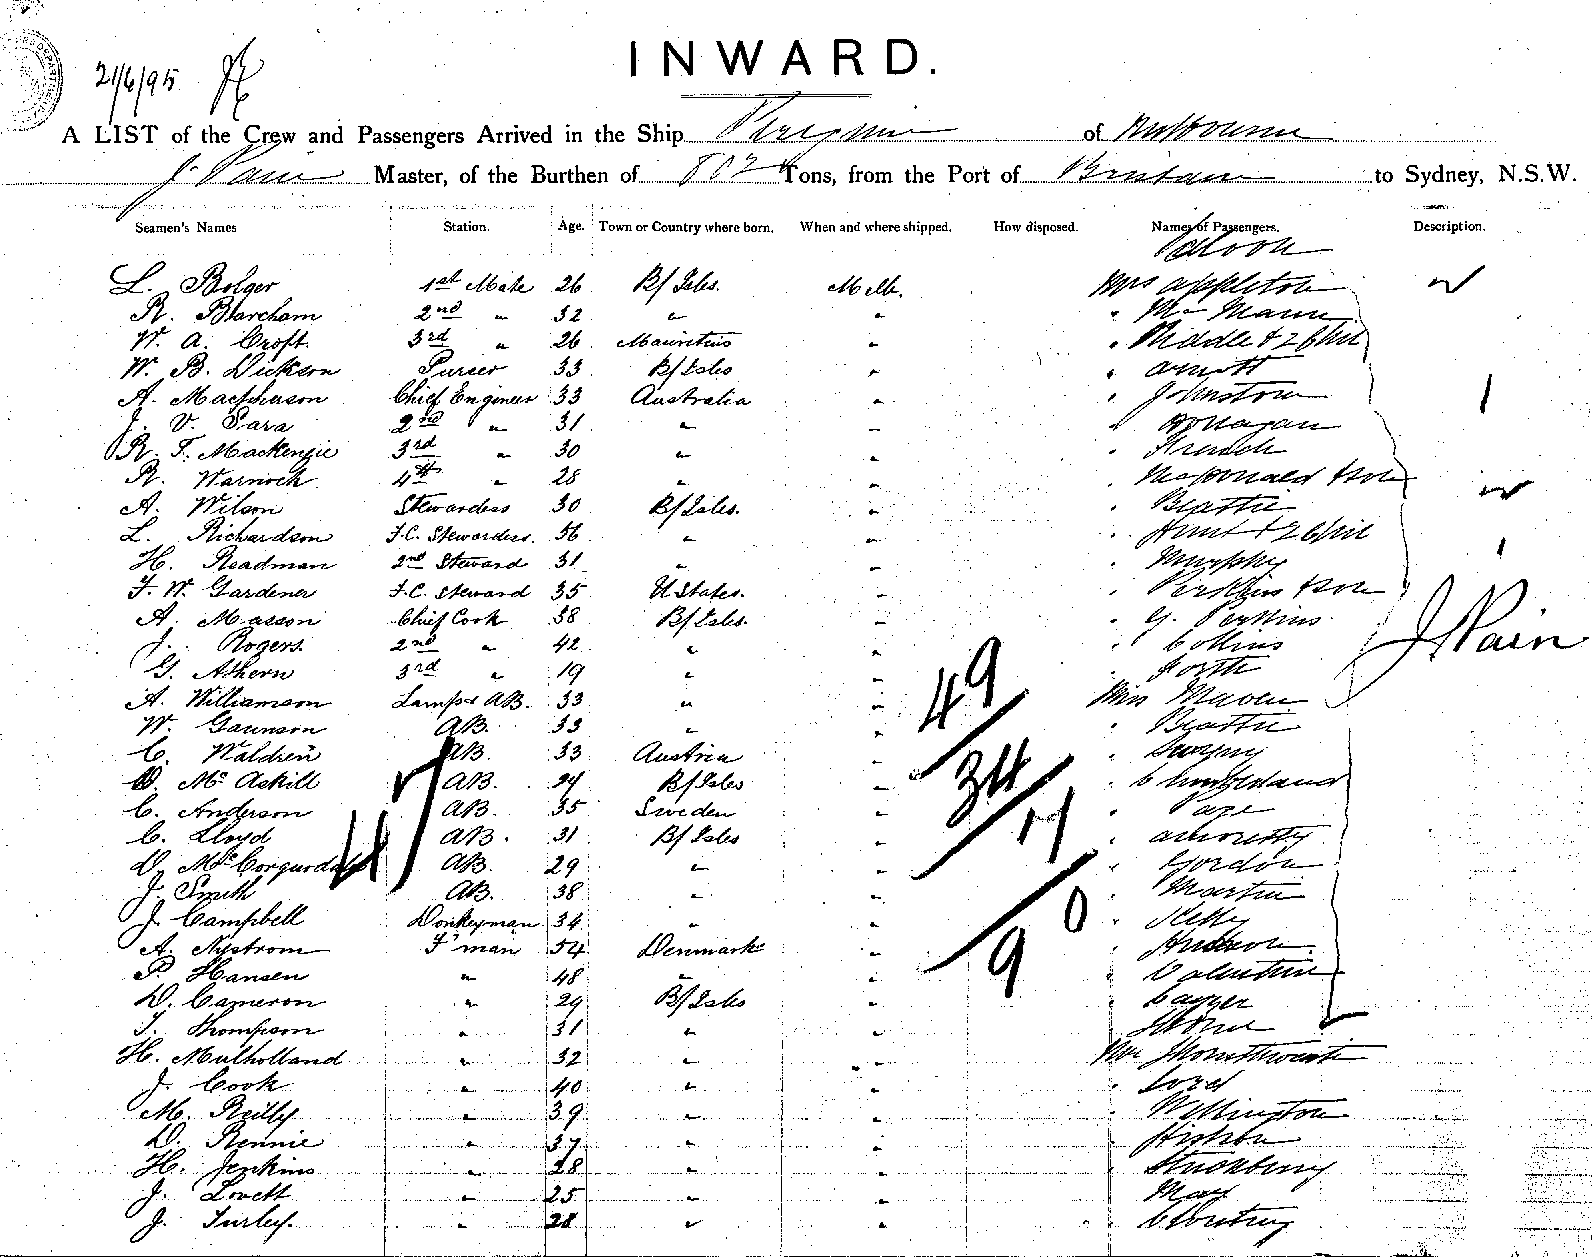 21/6/95
INWARD.
A LIST of the Crew and Passengers Arrived in the Ship of Melbourne
J. Pain Master, of the Burthen of Tons, from the Port of Brisbane to Sydney, N.S.W.
Seamen's Names Station. Age. Town or Country where born. When and where shipped. How disposed. Names of Passengers. Description.
Saloon
L. Bolger 1st Mate 26 B/Isles. Melb. Mrs Appleton
R. Blarcham 2nd " 32 " " " Mc Mann
W. A. Croft 3rd " 26 Mauritius " " Riddle & 2 Chil
W. B. Dickson Purser 33 B/Isles " " Arnott
A. Macpherson Chief Engineer 33 Australia " " Johnston
J. V. Sara 2nd " 31 " " "
R. T. Mackenzie 3rd " 30 " " " French
R. Warnock 4th " 28 " " " McDonald & son
A. Wilson Stewardess 30 B/Isles. " " Beattie
L. Richardson F.C. Stewardess. 56 " " " Hunt & 2 Chil
H. Readman 2nd Steward 31 " " " Murphy
F. W. Gardener F.C. Steward 35 U States. " " Perkins & son
A. Masson Chief Cook 38 B/Isles. " " G. Perkins
J. Rogers 2nd " 42 " " " Collins
G. Athern 3rd " 19 " " " Forth
J Pain
A. Williamson Lamps AB. 33 " " Miss
49
W. Gaunson AB. 33 " " " Beattie
C. Waldren AB. 33 Austria " "
D. McAskill AB. 24 B/Isles " "
34
C. Anderson AB. 35 Sweden " " Page
C. Lloyd AB. 31 B/Isles " "
17
D. AB. 29 " " " Gordon
J. Smith AB. 38 " " " Martin
J. Campbell Donkeyman 34 " " " Kelly
0
A. Nystrom F'man 54 Denmark " "
9
P. Hansen " 48 " " " Valentine
D. Cameron " 29 B/Isles " "
T. Thompson " 31 " " "
H. Mulholland " 32 " " Mr
J. Cook " 40 " " " Lord
M. Reilly " 39 " " " Wellington
D. Rennie " 37 " " "
H. Jenkins " 28 " " "
J. Lovett " 25 " " " May
J. Turley. " 28 " " "